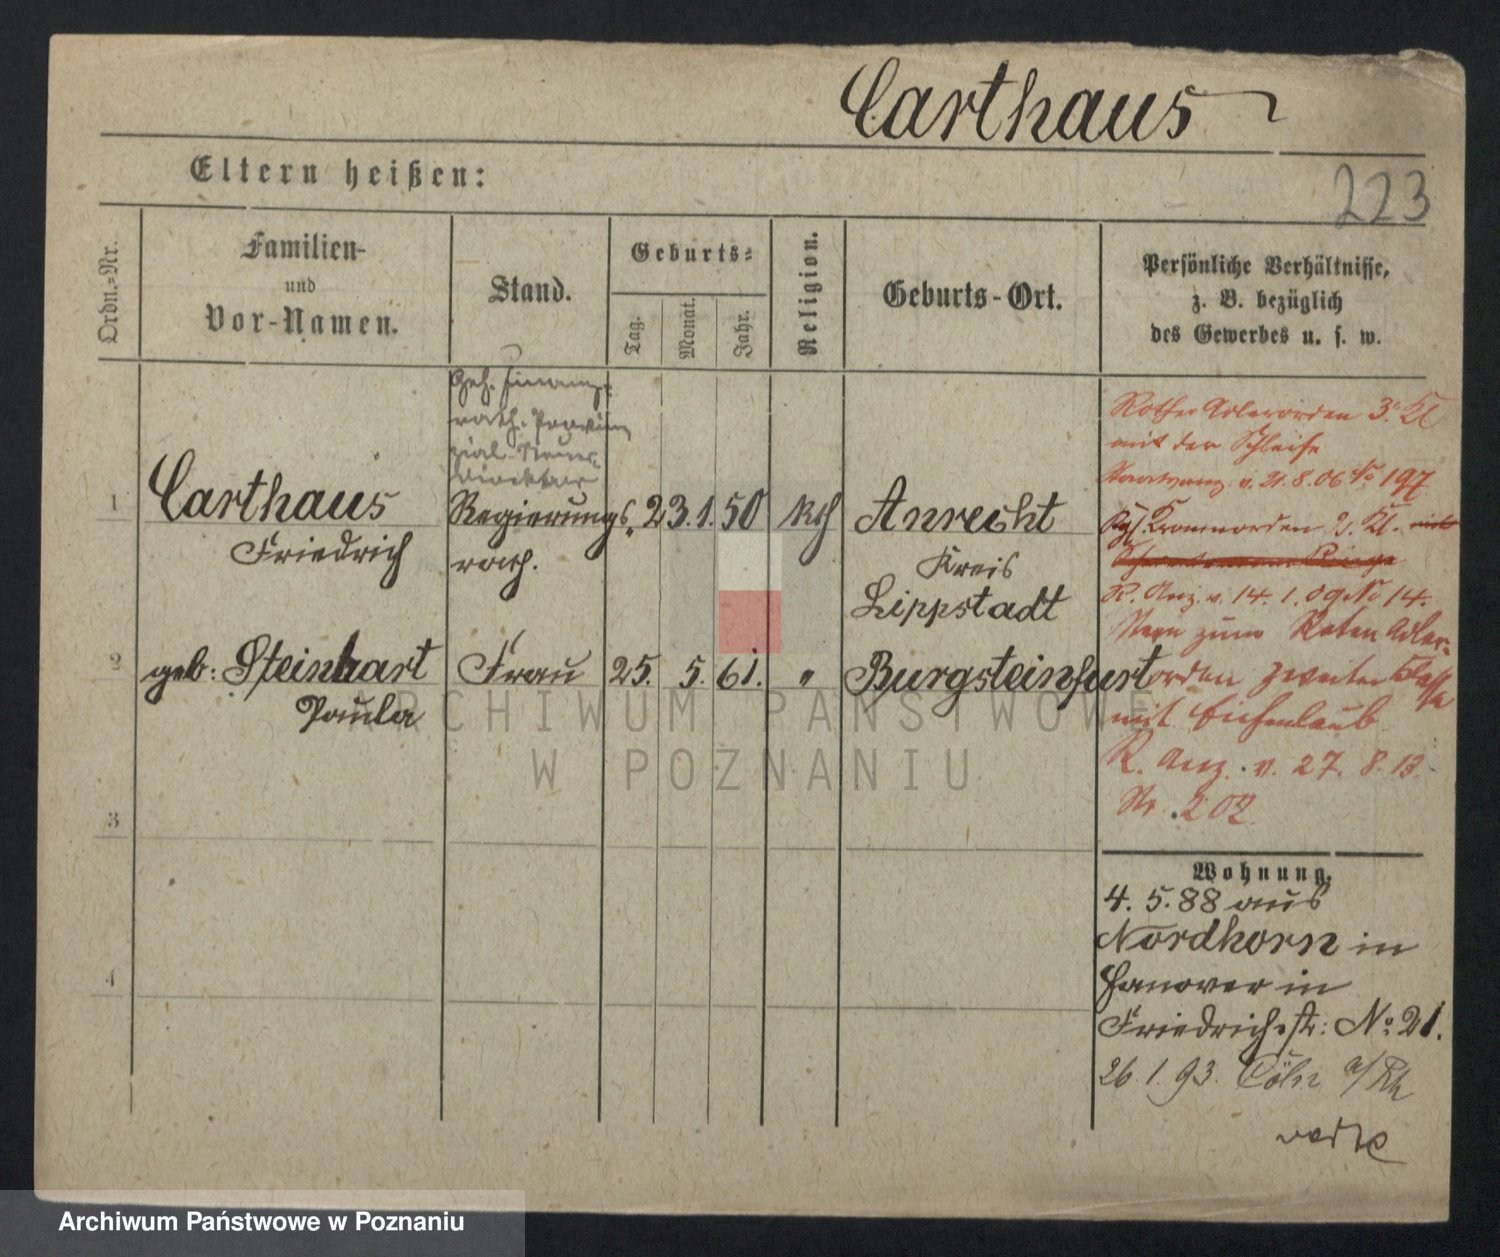 Carthaus
Eltern heißen:
223
Ordn.=Nr.
Familien-
und
Vor-Namen.
Stand.
Geburts=
Tag.
Monat.
Jahr.
Religion.
Geburts-Ort.
Persönliche Verhältnisse,
z. B. bezüglich
des Gewerbes u. s. w.
Geh. Finanz-
rath. Provin
zial-Steuer-
direktor
1
Carthaus
Friedrich
Regierungs
rath.
23. 1. 50
Kth
Anrecht
Kreis
Lippstadt
2
geb: Steinhart
Paula
Frau
25. 5. 61.
"
Burgsteinfurt
3
4
Rother Adlerorden 3. Kl
mit der Schleife
v. 21.8.06 No 197
Kgl. Kronenorden 2. Kl. mit
R. Anz. v. 14. 1. 09 No 14.
zum Roten Adler-
orden zweiter Klasse
mit Eichenlaub
R. Anz. v. 27. 8. 13.
Nr. 202
Wohnung.
4. 5. 88 aus
Nordhorn in
Hanover in
Friedrichstr: No. 21.
26. 1. 93. Cöln a/Rh
ARCHIWUM PAŃSTWOWE
W POZNANIU
Archiwum Państwowe w Poznaniu